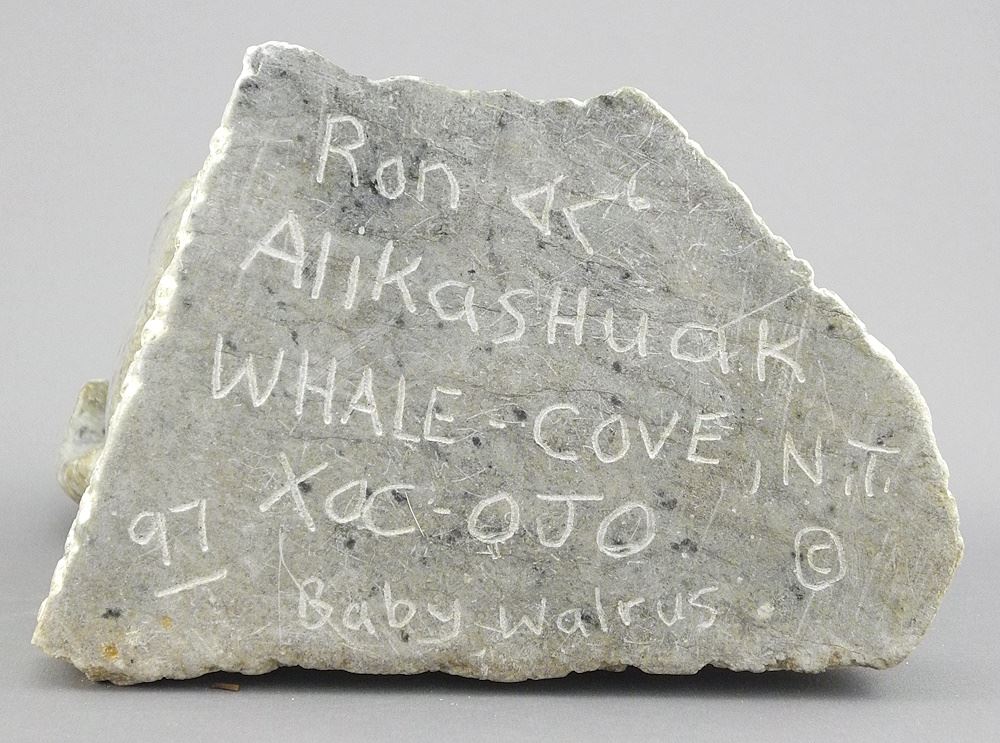 Ron ᐊᓕᒃ
AlikasHuak
WHALE-COVE, N.T.
XOC-OJO
97
©
Baby walrus